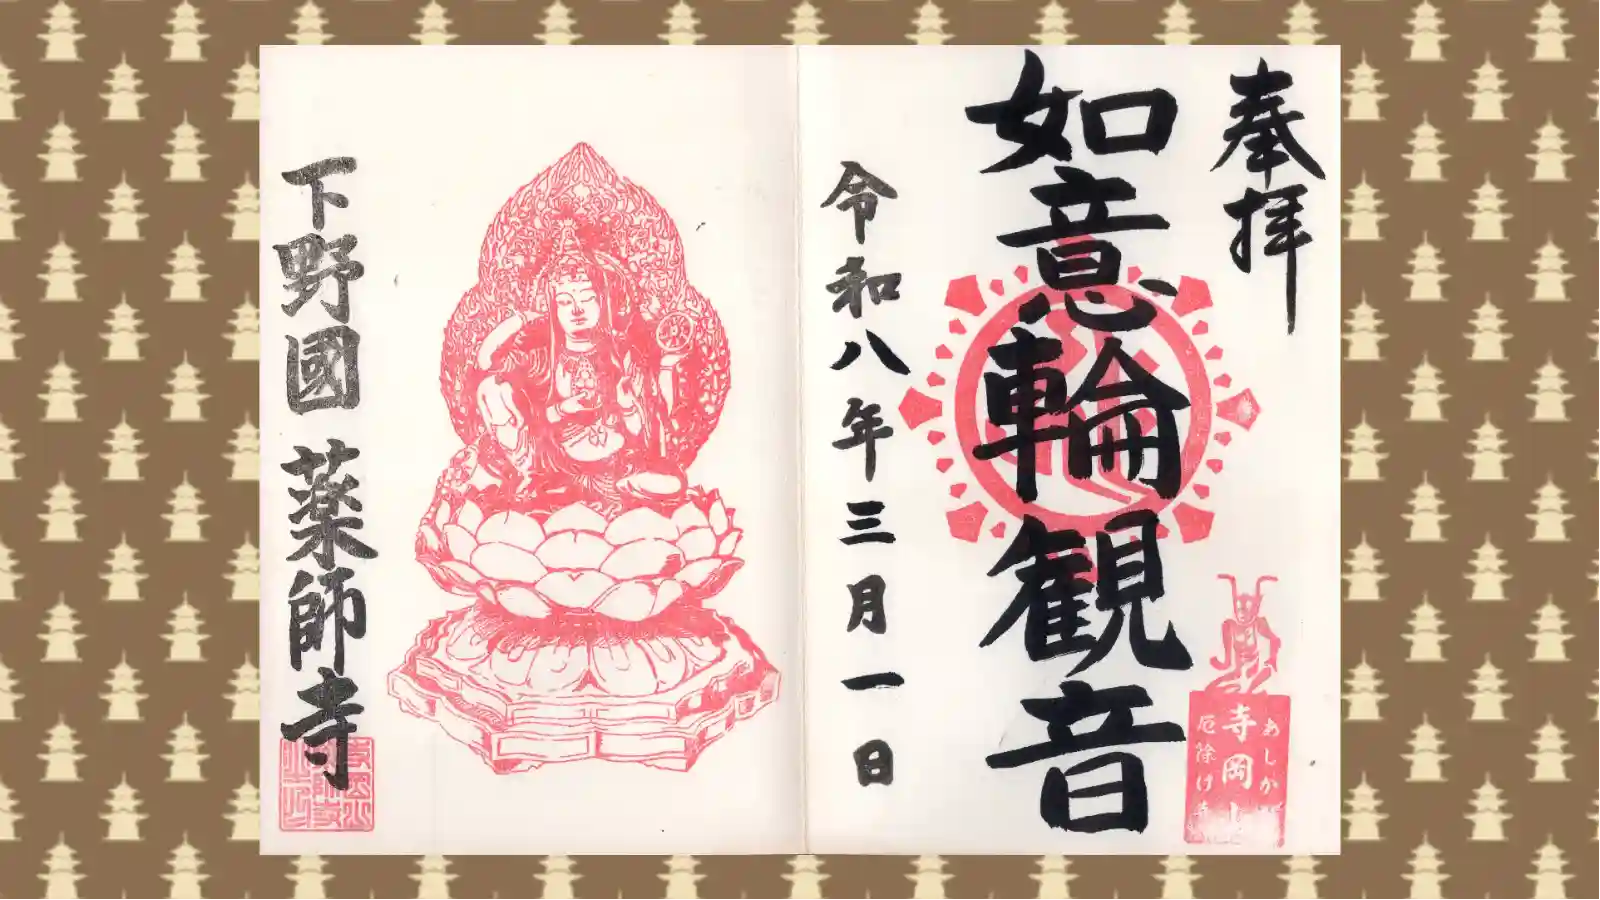 奉拝
如意輪観音
令和八年三月一日
下野國 薬師寺
あしかゞ
寺岡山
厄除け寺